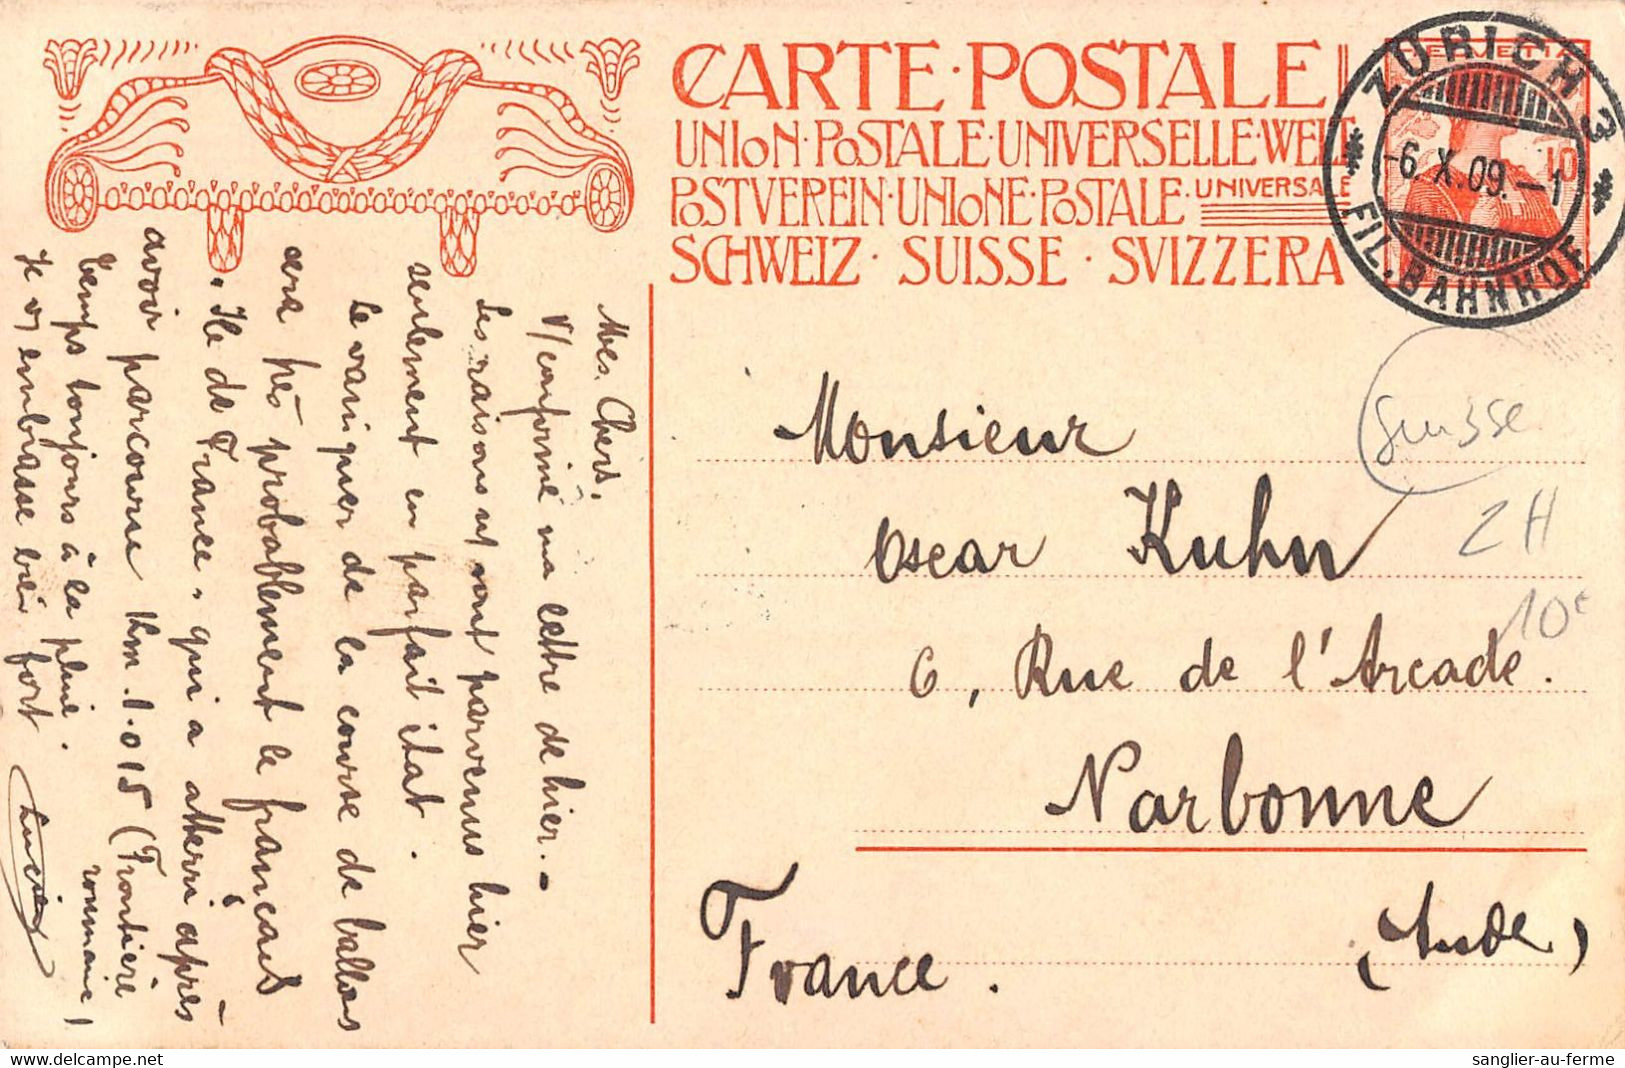 CARTE·POSTALE
UNION·POSTALE·UNIVERSELLE·WELT
POSTVEREIN·UNIONE·POSTALE·UNIVERSALE
SCHWEIZ · SUISSE · SVIZZERA
HELVETIA
10
ZÜRICH 3
-6. X. 09.-1
FIL. BAHNHOF
Mes Chers.
V/confirme ma lettre de hier.-
Les raisons nt sont parvenus hier
seulement en parfait état.
Le vainquer de la course de ballons
sera très probablement le français
"Ile de France" qui a atterri après
avoir parcourse Km. 1.015 (Frontière
roumaine)
temps toujours à la pluie.
Je vs embrasse bien fort
Lucien
Suisse
2H
10€
Monsieur
Oscar Kuhn
6, Rue de l'Arcade.
Narbonne
(Aude)
France.
delcampe.net
sanglier-au-ferme